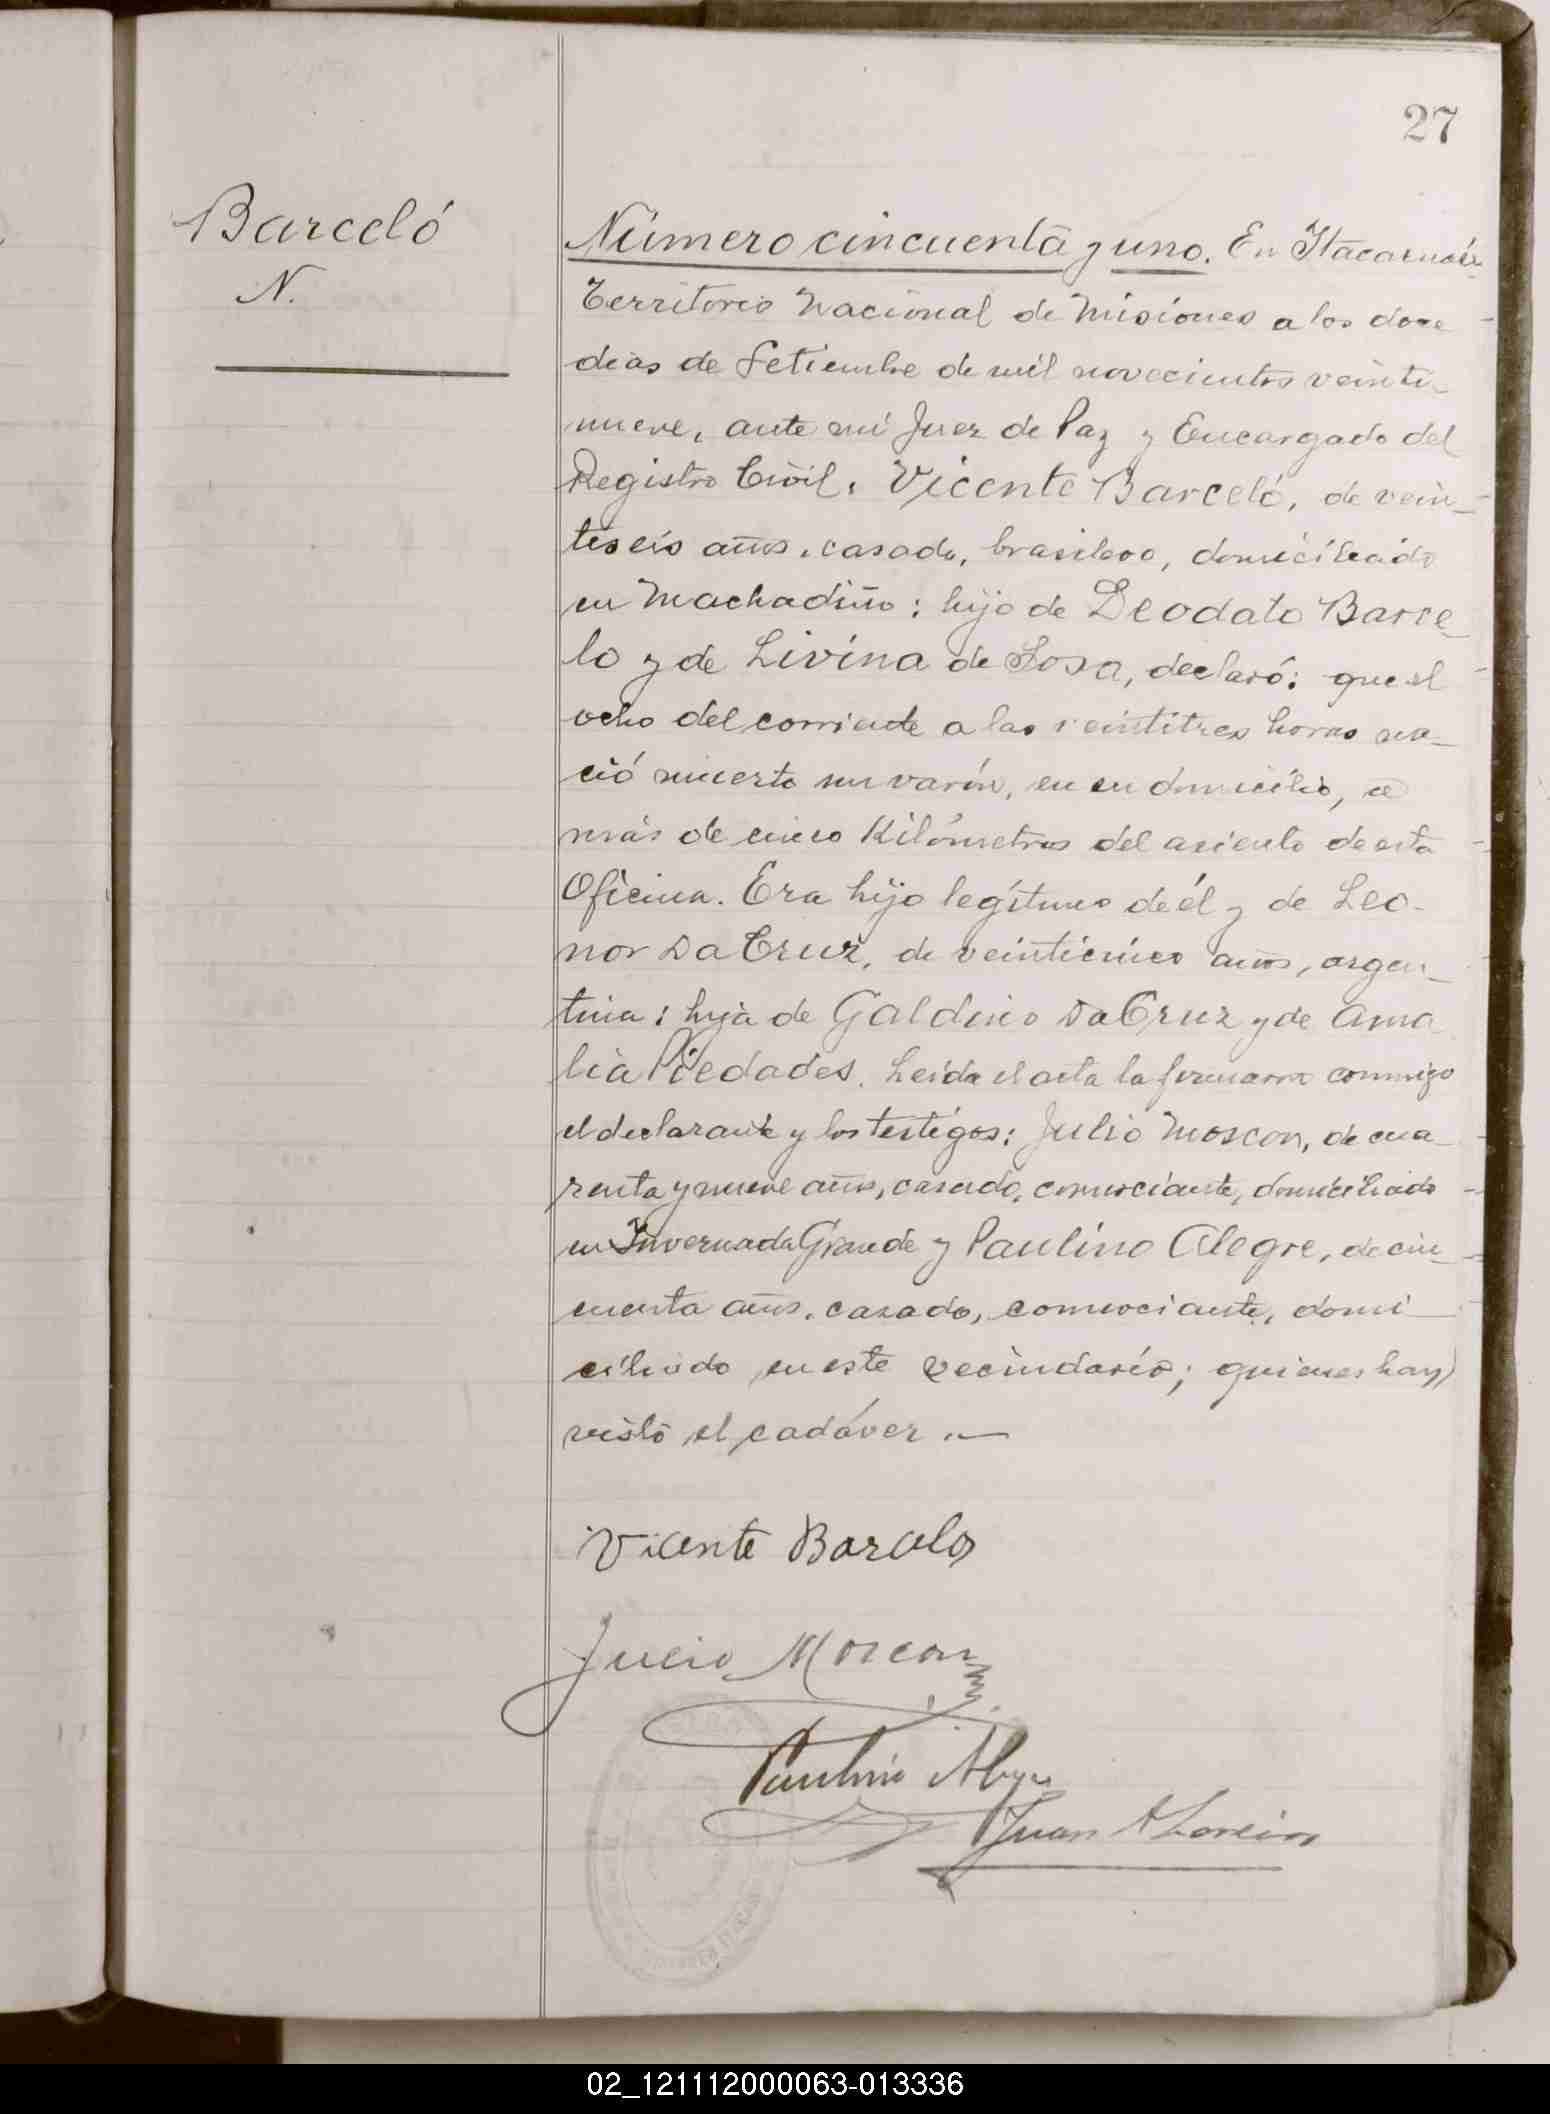 27
Barceló
N.
Número cincuenta y uno. En Itacaruaré
Territorio Nacional de Misiones a los doce
dias de Setiembre de mil novecientos veinti-
nueve, ante mi Juez de Paz y Encargado del
Registro Civil, Vicente Barceló, de vein-
tiseis años, casado, brasilero, domiciliado
en Machadiño: hijo de Deodato Barce-
lo y de Livina de Sosa, declaró: que el
ocho del corriente a las veintitres horas na-
ció muerto un varón, en su domicilio, a
más de cinco Kilómetros del asiento de esta
Oficina. Era hijo legítimo de él y de Leo-
nor Da Cruz, de veinticinco años, argen-
tina: hija de Galdino Da Cruz y de Ama
lia Piedades. Leida el acta la firmaron conmigo
el declarante y los testigos: Julio Moscon, de cua-
renta y nueve años, casado, comerciante, domiciliado
en Invernada Grande y Paulino Alegre, de cin-
cuenta años, casado, comerciante, domi
ciliado en este vecindario; quienes han
visto el cadáver.—
Vicente Barcelo
Julio Moscon
Paulino Alegre
Juan A
02_121112000063-013336